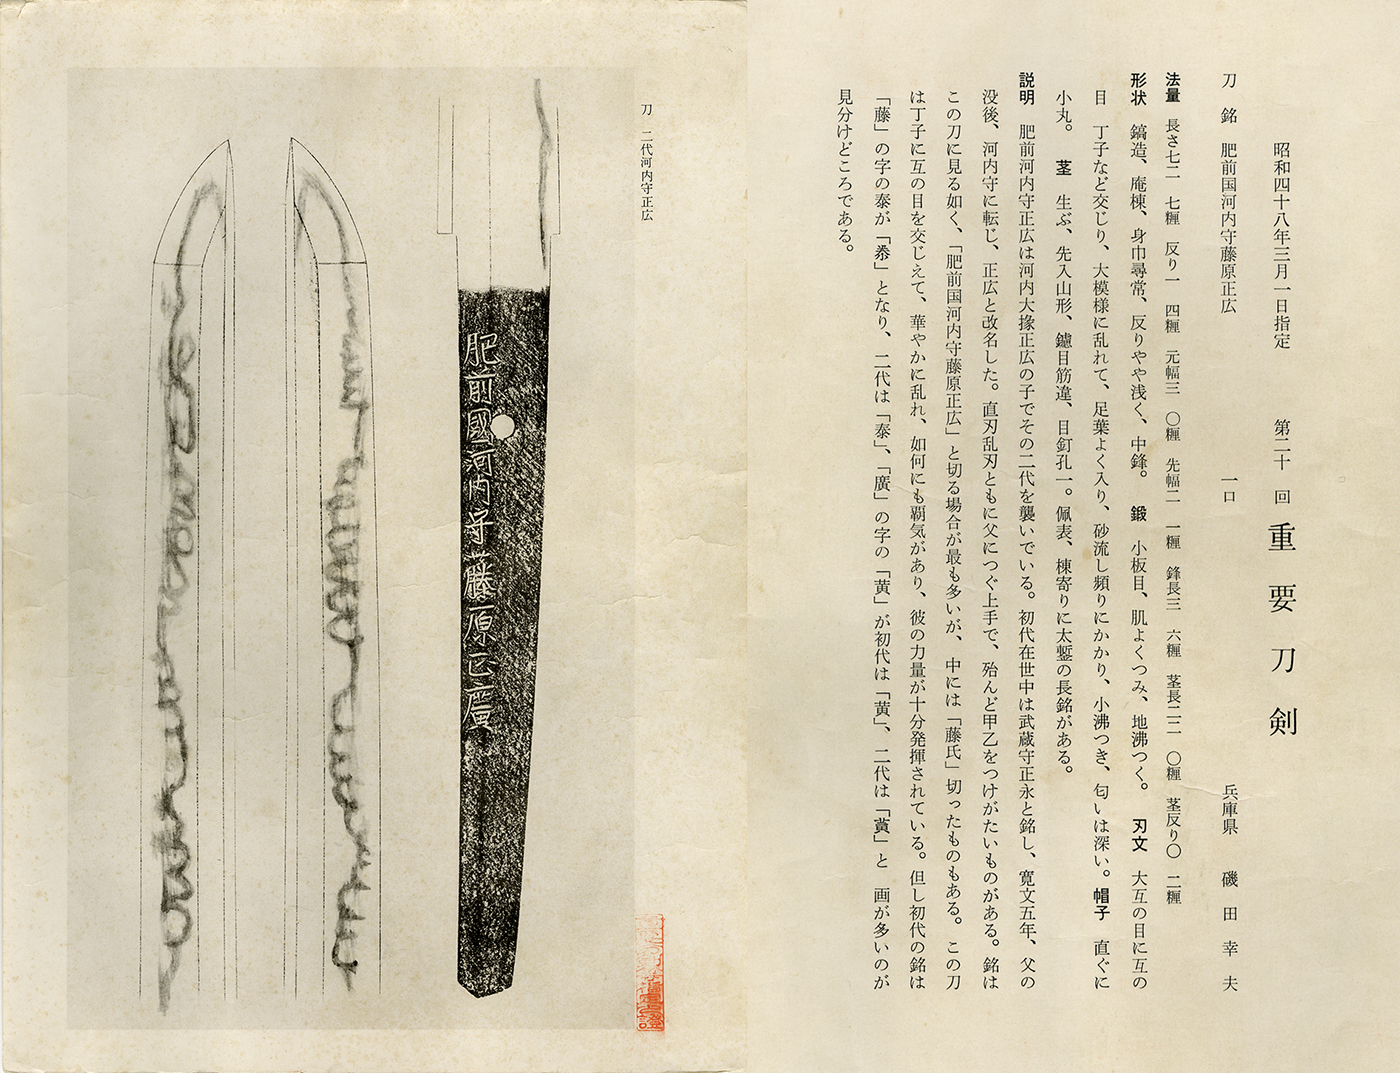 昭和四十八年三月一日指定　第二十回　重要刀剣
刀　銘　肥前国河内守藤原正広　一口　兵庫県　磯田幸夫
法量　長さ七二　七糎　反り一　四糎　元幅三　〇糎　先幅二　一糎　鋒長三　六糎　茎長二二　〇糎　茎反り〇　二糎
形状　鎬造、庵棟、身巾尋常、反りやや浅く、中鋒。　鍛　小板目、肌よくつみ、地沸つく。　刃文　大互の目に互の
目　丁子など交じり、大模様に乱れて、足葉よく入り、砂流し頻りにかかり、小沸つき、匂いは深い。帽子　直ぐに
小丸。　茎　生ぶ、先入山形、鑢目筋違、目釘孔一。佩表、棟寄りに太鏨の長銘がある。
説明　肥前河内守正広は河内大掾正広の子でその二代を襲いでいる。初代在世中は武蔵守正永と銘し、寛文五年、父の
没後、河内守に転じ、正広と改名した。直刃乱刃ともに父につぐ上手で、殆んど甲乙をつけがたいものがある。銘は
この刀に見る如く、「肥前国河内守藤原正広」と切る場合が最も多いが、中には「藤氏」切ったものもある。この刀
は丁子に互の目を交じえて、華やかに乱れ、如何にも覇気があり、彼の力量が十分発揮されている。但し初代の銘は
「藤」の字の泰が「𣳾」となり、二代は「泰」、「廣」の字の「黄」が初代は「黄」、二代は「黃」と　画が多いのが
見分けどころである。
刀　二代河内守正広
肥前國河内守藤原正廣